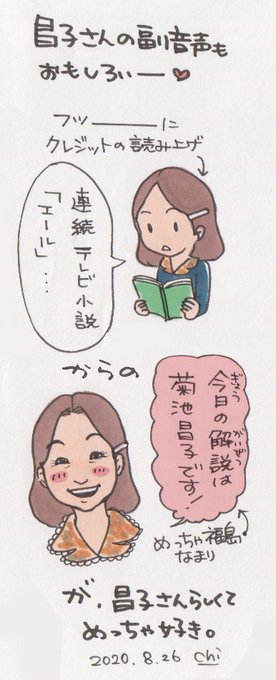 昌子さんの副音声も
おもしろぃー♥
フツ―――に
クレジットの読み上げ
連続テレビ小説
「エール」...
からの
今日の解説は
ぎょう
がいぜつ
菊池昌子です!
めっちゃ福島
なまり
が、昌子さんらしくて
めっちゃ好き。
2020.8.26 chi